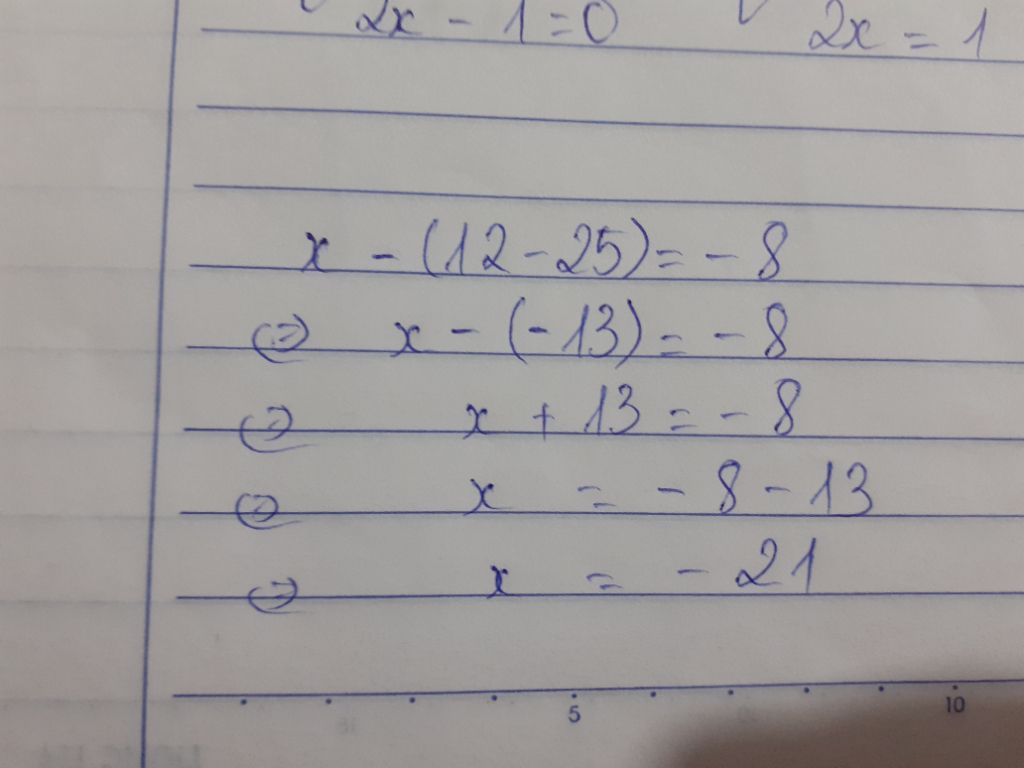 2x - 1 = 0 2x = 1
x - (12 - 25) = - 8
⇔ x - (- 13) = - 8
⇔ x + 13 = - 8
⇔ x = - 8 - 13
⇔ x = - 21
5 10